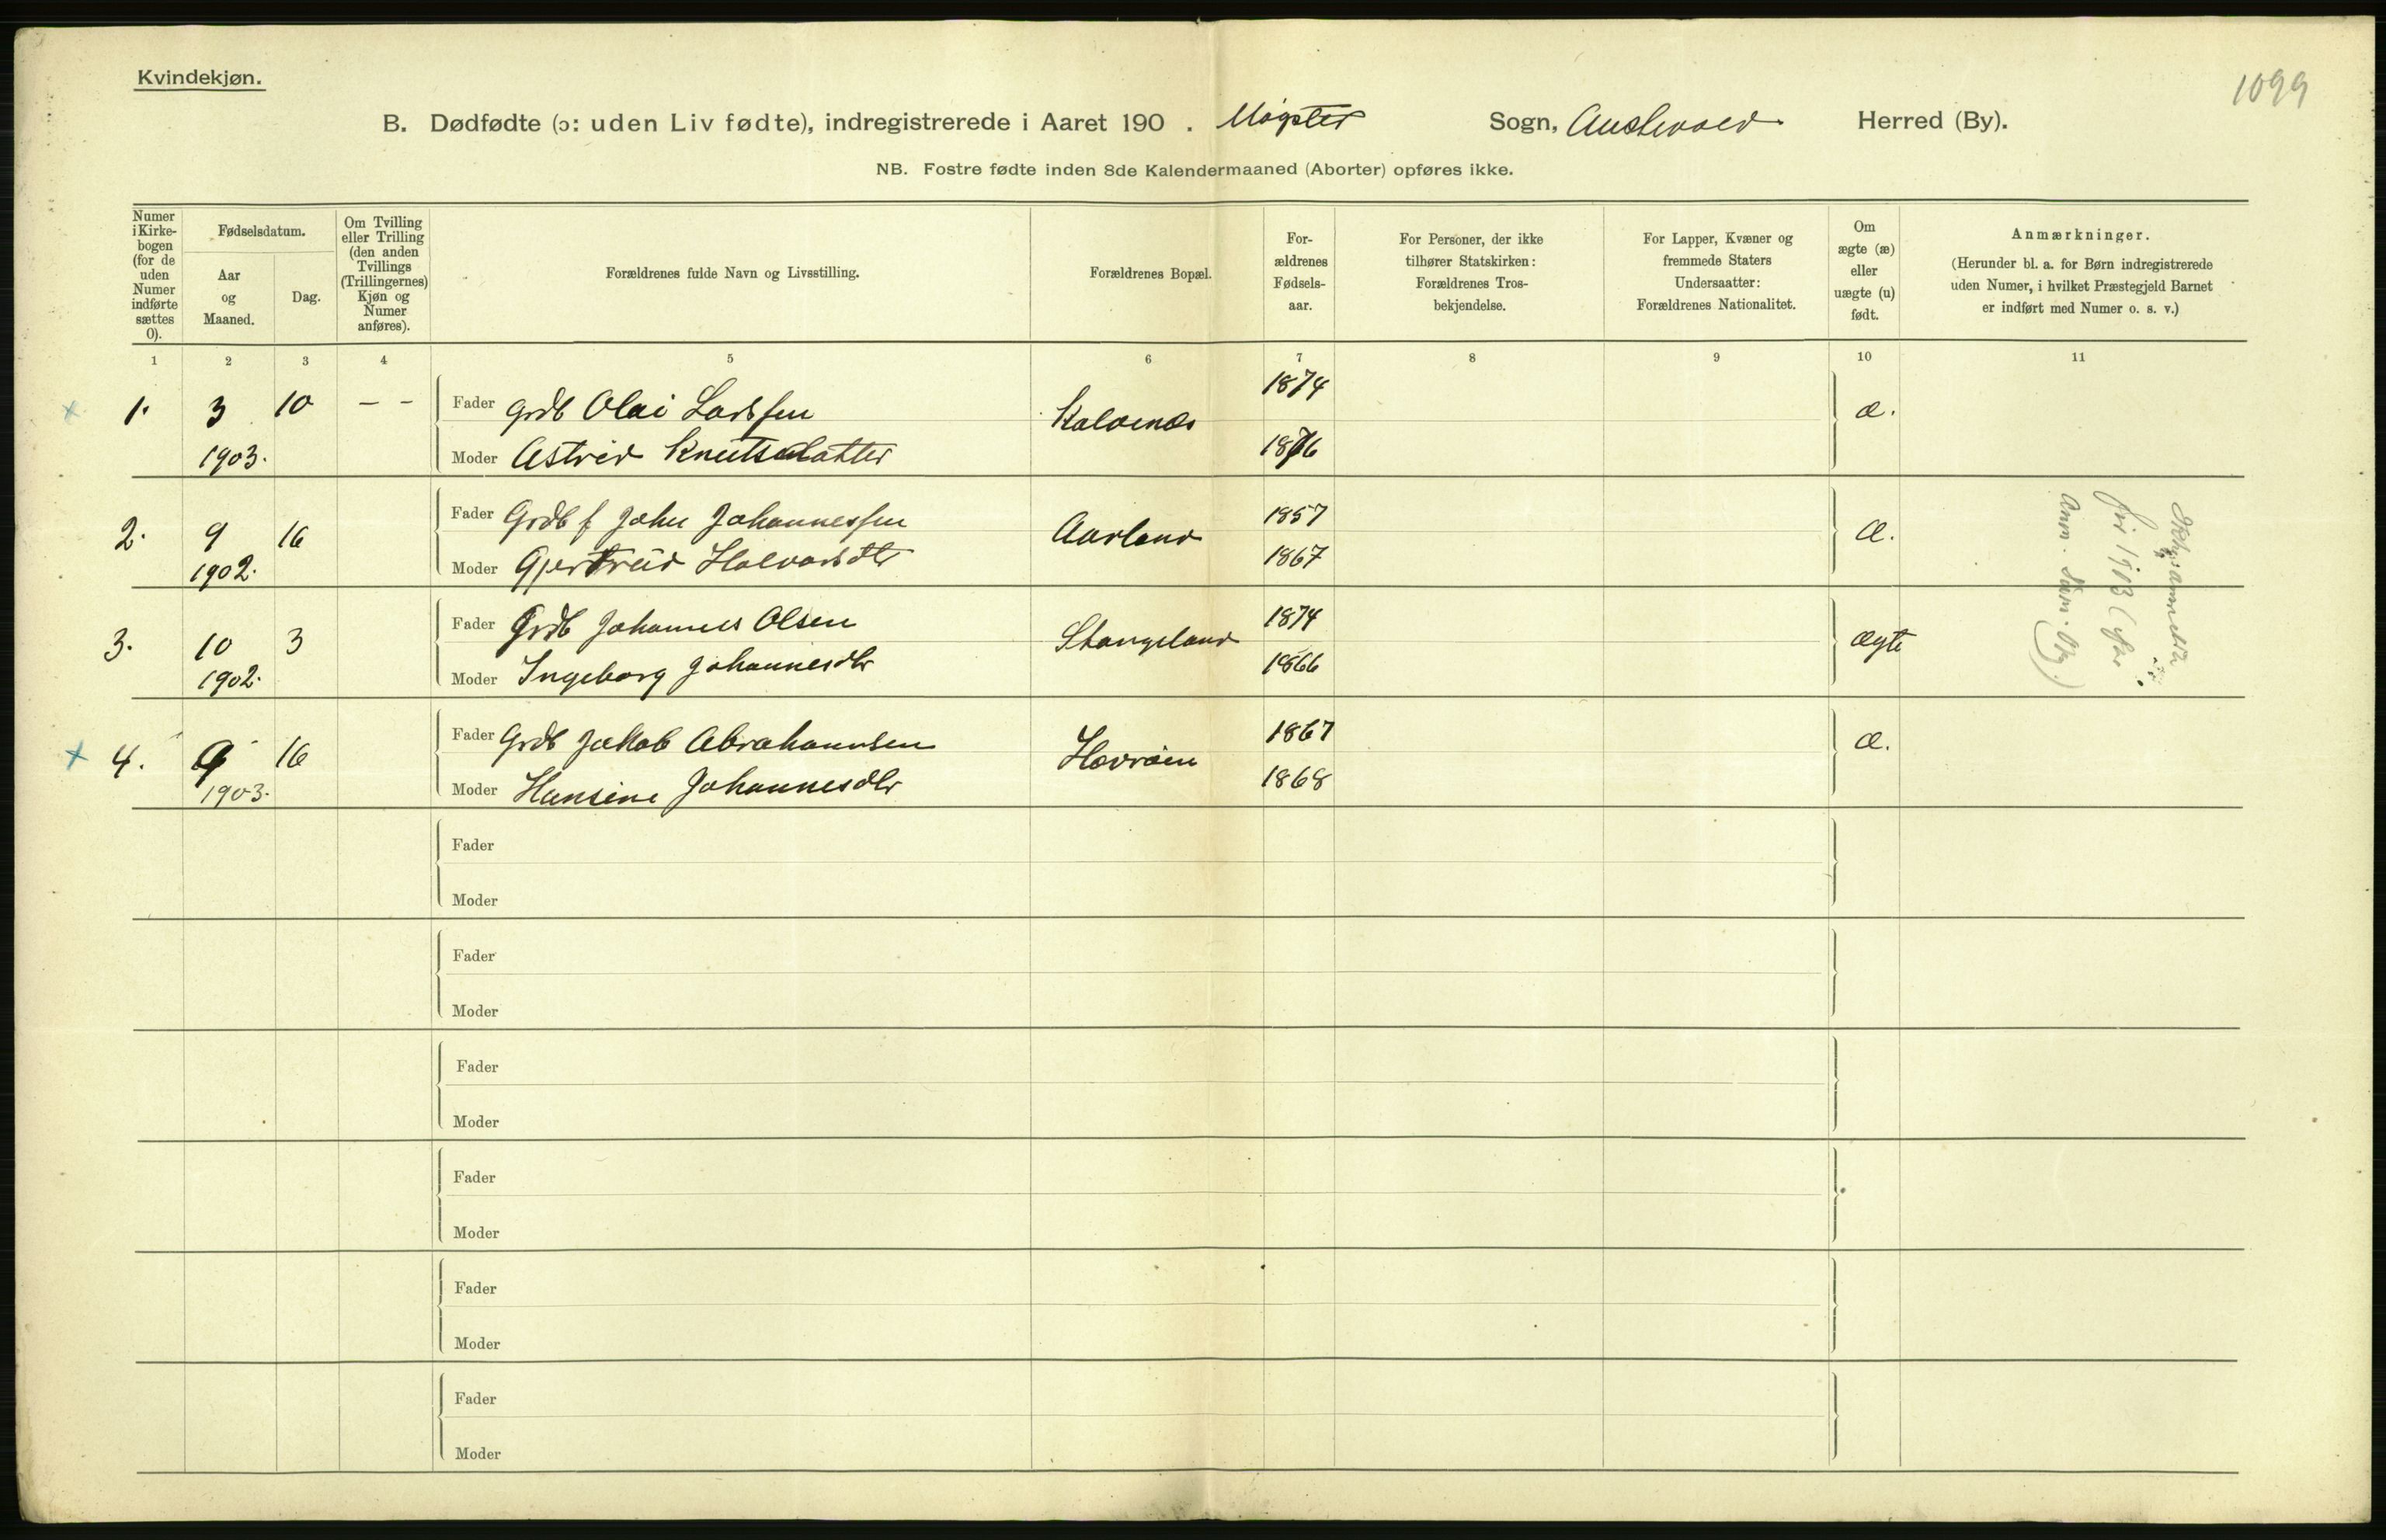 Kvindekjøn.
1099
B. Dødfødte (ɔ: uden Liv fødte), indregistrerede i Aaret 190 . Møgster Sogn, Austevold Herred (By).
NB. Fostre fødte inden 8de Kalendermaaned (Aborter) opføres ikke.
Numer i Kirke-bogen (for de uden Numer indførte sættes 0).
Fødselsdatum.
Aar og Maaned.
Dag.
Om Tvilling eller Trilling (den anden Tvillings (Trillingernes) Kjøn og Numer anføres).
Forældrenes fulde Navn og Livsstilling.
Forældrenes Bopæl.
For-ældrenes Fødsels-aar.
For Personer, der ikke tilhører Statskirken: Forældrenes Tros-bekjendelse.
For Lapper, Kvæner og fremmede Staters Undersaatter: Forældrenes Nationalitet.
Om ægte (æ) eller uægte (u) født.
Anmærkninger.
(Herunder bl. a. for Børn indregistrerede uden Numer, i hvilket Præstegjeld Barnet er indført med Numer o. s. v.)
1 2 3 4 5 6 7 8 9 10 11
x 1. 3 10 - - Fader Grdb Olai Larssen Kalvenes 1874 æ.
1903. Moder Astrid Knutsdatter 1876
2. 9 16 Fader Grdb f John Johannessen Aarland 1857 æ.
1902. Moder Gjertrud Halvorsdtr 1867
3. 10 3 Fader Grdb Johannes Olsen Stangeland 1874 ægte
1902. Moder Ingeborg Johannesdtr 1866
x 4. 9 16 Fader Grdb Jakob Abrahamsen Horrøen 1867 æ.
1903. Moder Hansine Johannesdtr 1868
for 1903
Anm.
Fader
Moder
Fader
Moder
Fader
Moder
Fader
Moder
Fader
Moder
Fader
Moder